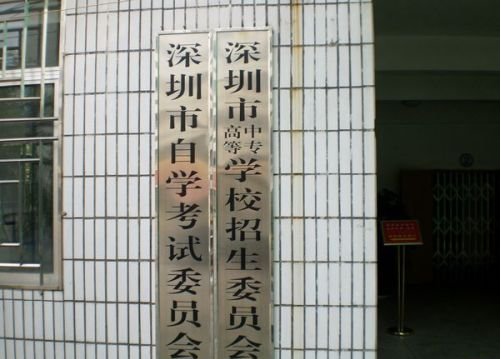 深圳市自学考试委员会
深圳市高等中专学校招生委员会